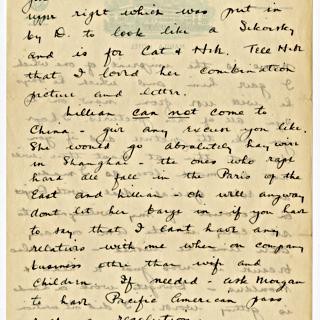 upper right which was put in
by D. to look like a Sikorsky
and is for Cat & Nik. Tell Nik
that I loved her combination
picture and letter.
Lillian can not come to
China - give any excuse you like.
She would go absolutely haywire
in Shanghai - the ones who rapt
hard all fall in the Paris of the
East and Lillian - oh well anyway
dont let her barge in - if you have
to say that I cant have any
relations with me when on company
business other than wife and
children If needed - ask Morgan
to have Pacific American pass